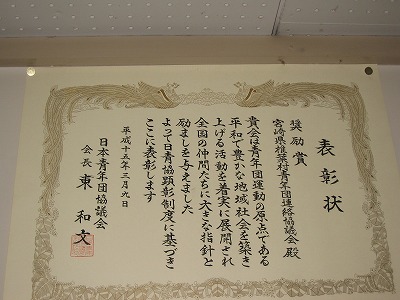 表彰状
奨励賞
宮崎県椎葉村青年団連絡協議会 殿
貴会は青年団運動の原点である
平和で豊かな地域社会を築き
上げる活動を着実に展開され
全国の仲間たちに大きな指針と
励ましを与えました
よって日青協顕彰制度に基づき
ここに表彰します
平成十五年三月九日
日本青年団協議会
会長 東 和文